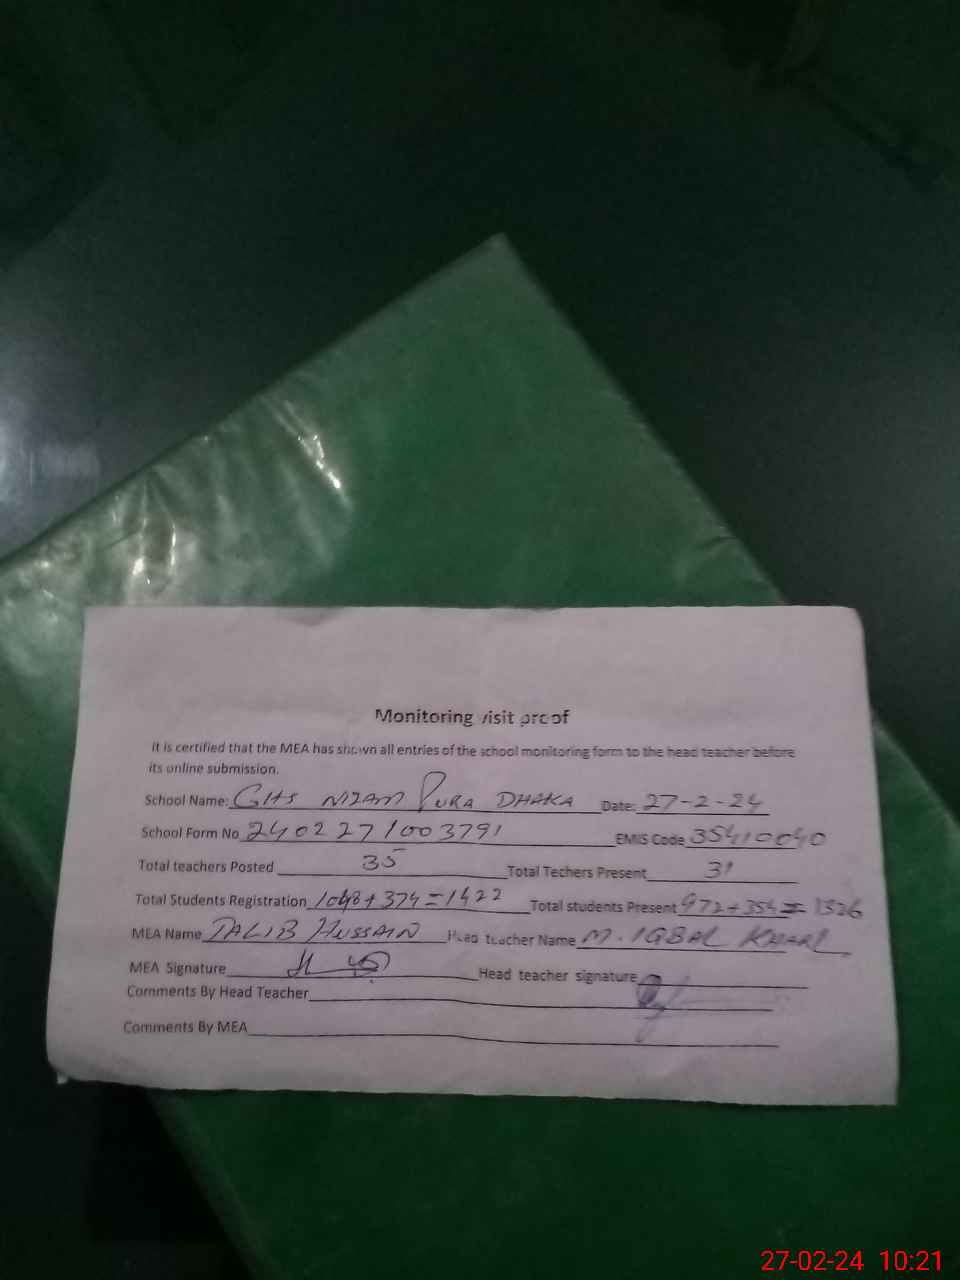 Monitoring visit proof
It is certified that the MEA has shown all entries of the school monitoring form to the head teacher before
its online submission.
School Name: GHS NIZAM PURA DHAKA Date: 27-2-24
School Form No 2402271003791 EMIS Code 35410040
Total teachers Posted 35 Total Techers Present 31
Total Students Registration 1048+374=1422 Total students Present 972+354=1326
MEA Name TALIB HUSSAIN Head teacher Name M. IQBAL KHARL
MEA Signature Head teacher signature
Comments By Head Teacher
Comments By MEA
27-02-24 10:21